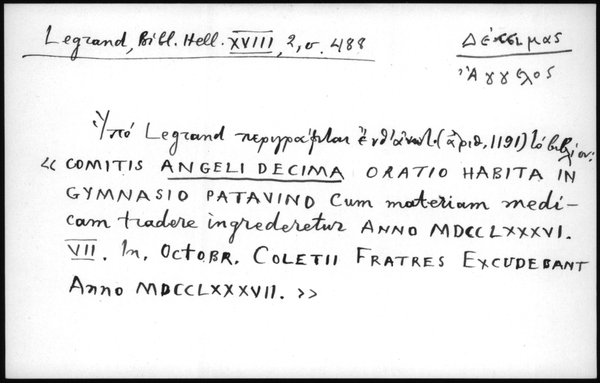 Legrand, Bibl. Hell. XVIII, 2, σ. 488
Δέκιμας
Ἄγγελος
Ὑπὸ Legrand περιγράφεται ἐνθ' ἀνωτ. (ἀριθ. 1191) τὸ βιβλίον:
« COMITIS ANGELI DECIMA ORATIO HABITA IN
GYMNASIO PATAVINO Cum materiam medi-
cam tradere ingrederetur ANNO MDCCLXXXVI.
VII. In. OCTOBR. COLETII FRATRES EXCUDEBANT
Anno MDCCLXXXVII. »